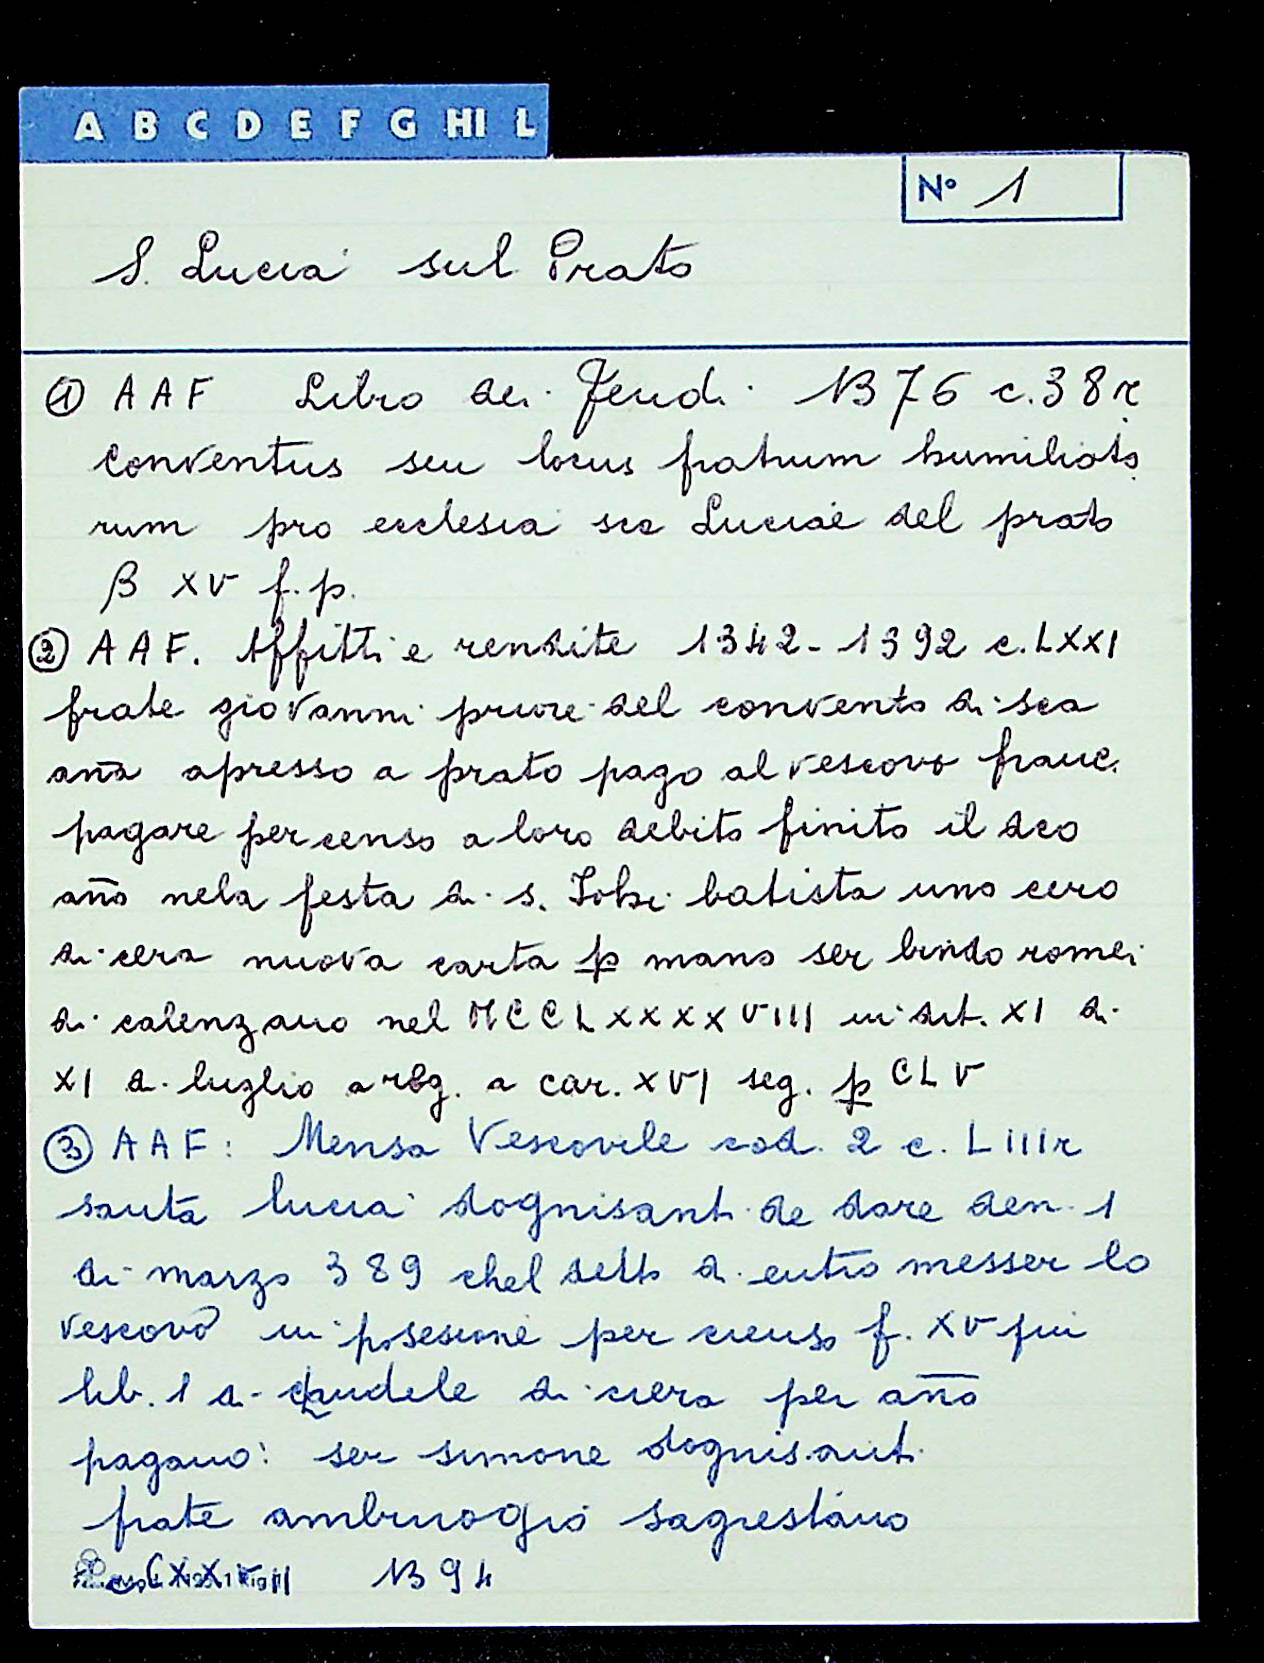 A B C D E F G HI L
N° 1
S. Lucia sul Prato
① AAF Libro dei Feudi 1376 c.38r
conventus seu locus fratrum humiliato
rum pro ecclesia sce Luciae del prato
β XV f.p.
② AAF. Affitti e rendite 1342-1392 c.LXXI
frate giovanni priore del convento di sca
ana apresso a prato pago al vescovo franc.
pagare per censo a loro debito finito il dco
año nela festa di s. Iohi batista uno cero
di cera nuova carta p mano ser bindo romei
di calenzano nel MCCLXXXXVIII in dit. XI di
XI di luglio a rog. a car. XVI seg. p CLV
③ AAF: Mensa Vescovile cod. 2 c. LIIIr
santa lucia dognisanti de dare den. 1
di marzo 389 chel detto di entro messer lo
vescovo in posesione per cienso f. XV fui
lib. 1 di chandele di ciera per año
pagano: ser simone dognisanti
frate ambruogio sagrestano
1394